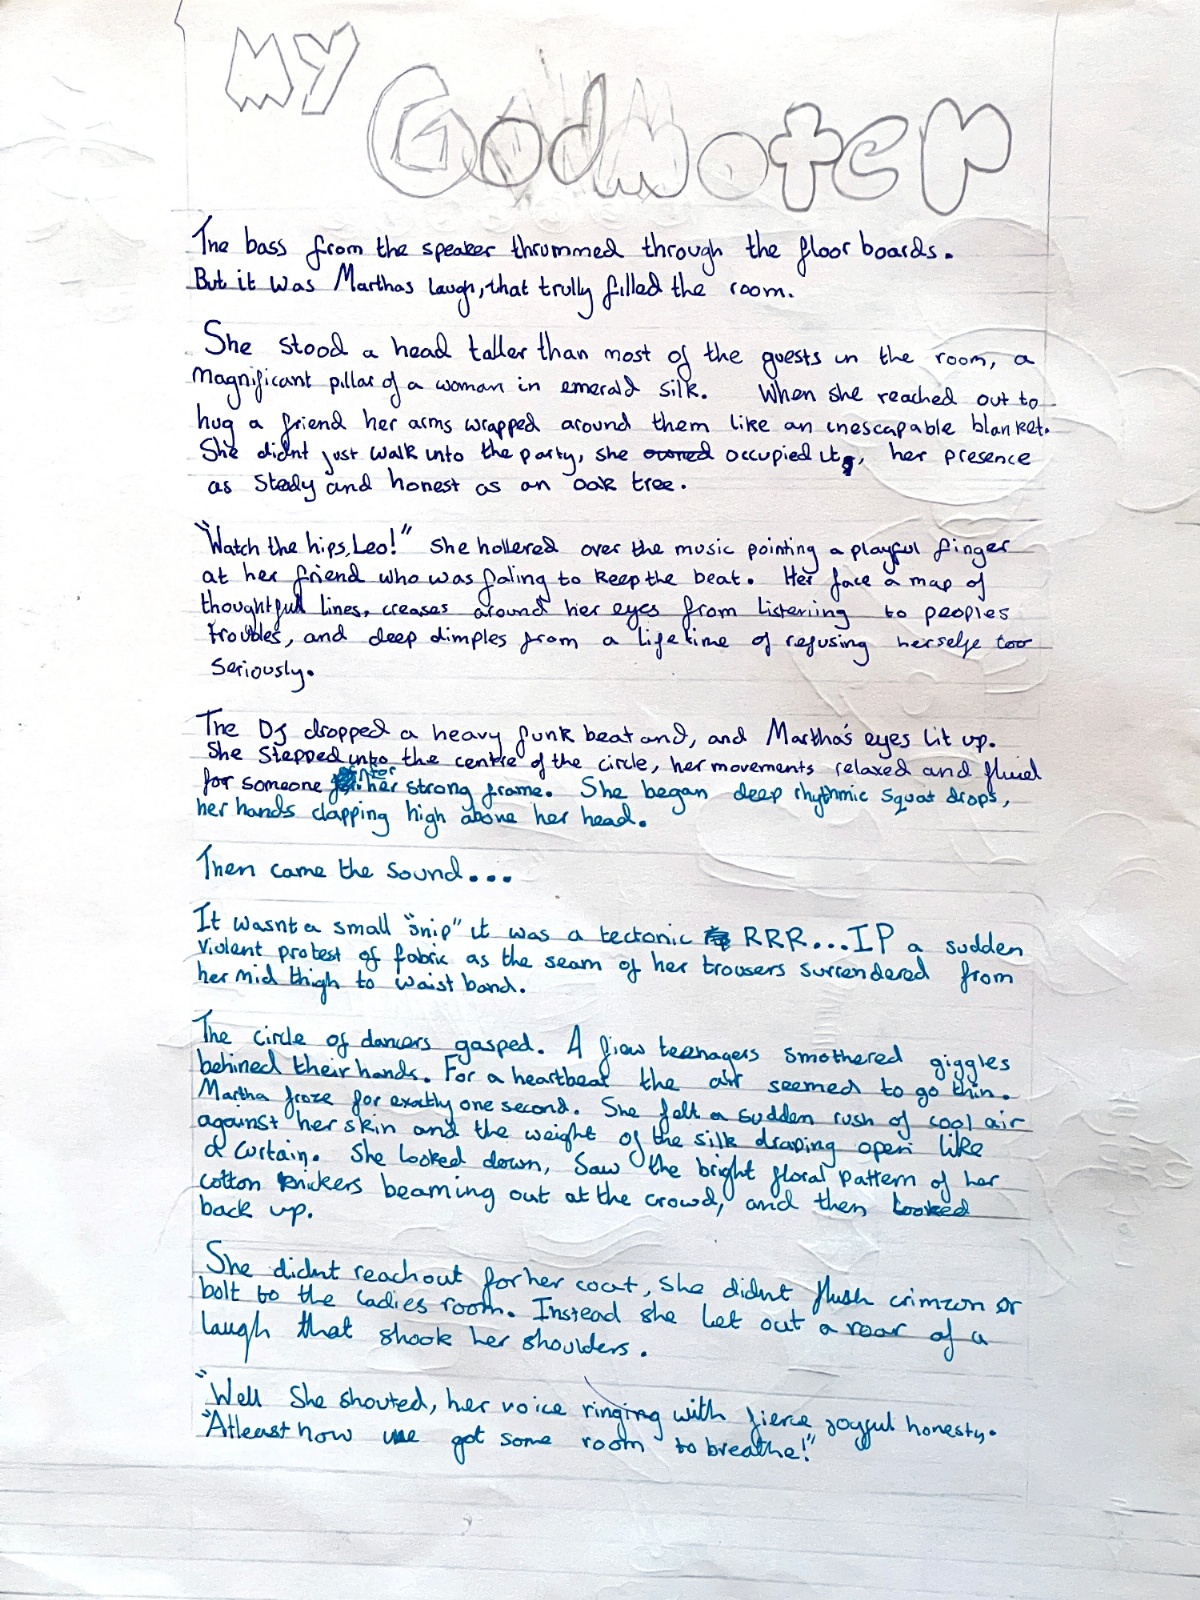 My
Godmoter
The bass from the speaker thrummed through the floor boards.
But it was Marthas laugh, that trully filled the room.
She stood a head taller than most of the guests in the room, a
magnificant pillar of a woman in emerald silk. When she reached out to
hug a friend her arms wrapped around them like an inescapable blanket.
She didnt just walk into the party, she owned occupied it, her presence
as steady and honest as an oak tree.
"Watch the hips, Leo!" She hollered over the music pointing a playful finger
at her friend who was faling to keep the beat. Her face a map of
thoughtful lines, creases around her eyes from listeniing to peoples
troubles, and deep dimples from a lifetime of refusing herselfe too
seriously.
The DJ dropped a heavy funk beat and, and Martha's eyes lit up.
She stepped into the centre of the circle, her movements relaxed and fluid
for someone her strong frame. She began deep rhythmic squat drops,
her hands clapping high above her head.
Then came the sound...
It wasnt a small "snip" it was a tectonic RRR...IP a sudden
violent protest of fabric as the seam of her trousers surrendered from
her mid thigh to waist band.
The circle of dancers gasped. A fiew teenagers smothered giggles
behined their hands. For a heartbeat the air seemed to go thin.
Martha froze for exactly one second. She felt a sudden rush of cool air
against her skin and the weight of the silk draping open like
a curtain. She looked down, saw the bright floral pattern of her
cotton knickers beaming out at the crowd, and then looked
back up.
She didnt reach out for her coat, she didnt flush crimzon or
bolt to the ladies room. Instead she let out a roar of a
laugh that shook her shoulders.
"Well She shouted, her voice ringing with fierce joyful honesty.
"Atleast now we got some room to breathe!"